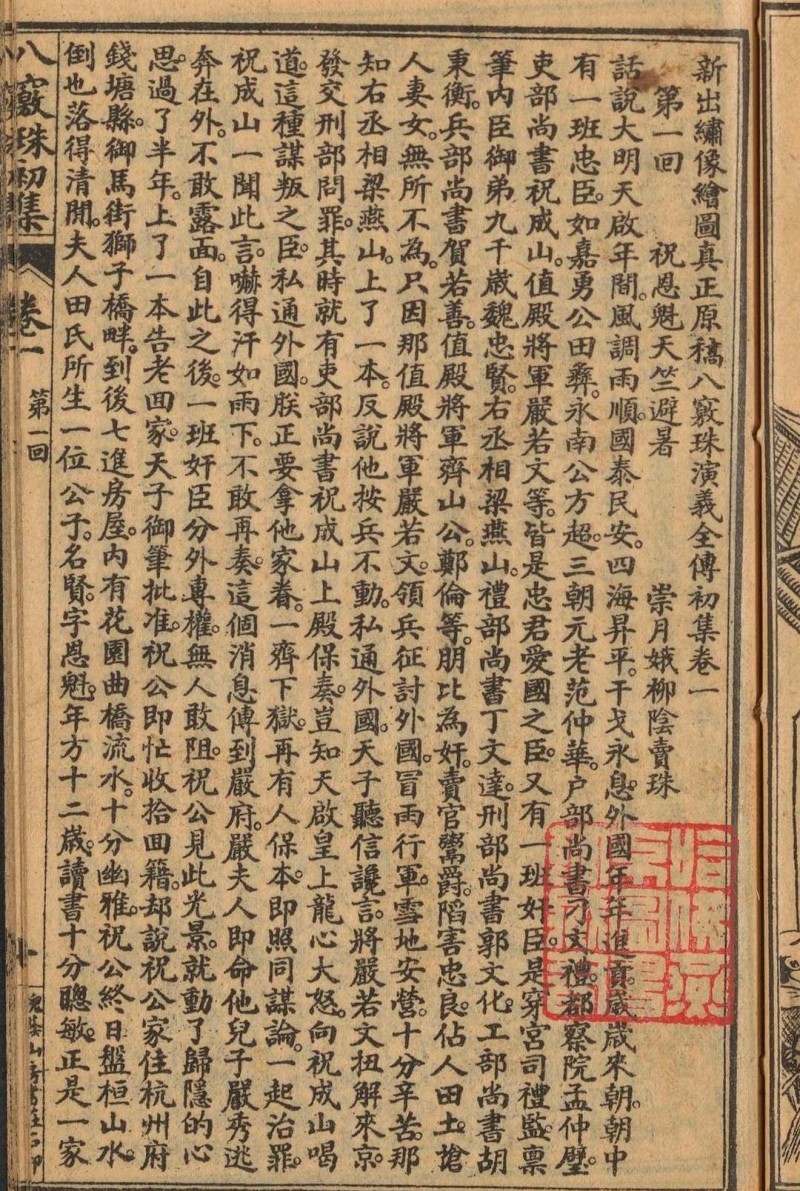 新出繡像繪圖真正原稿八竅珠演義全傳初集卷一
第一回 祝恩魁天竺避暑 崇月娥柳陰賣珠
話說大明天啟年間。風調雨順。國泰民安。四海昇平。干戈永息。外國年年進貢。歲歲來朝。朝中
有一班忠臣。如嘉勇公田彝。永南公方超。三朝元老范仲華。户部尚書刁文禮。都察院孟仲璧。
吏部尚書祝成山。值殿將軍嚴若文等。皆是忠君愛國之臣。又有一班奸臣。是穿宮司禮監稟
筆內臣御弟九千歲魏忠賢。右丞相梁燕山。禮部尚書丁文達。刑部尚書郭文化。工部尚書胡
秉衡。兵部尚書賀若善。值殿將軍齊山公。鄭倫等。朋比為奸。賣官鬻爵。陷害忠良。佔人田土。搶
人妻女。無所不為。只因那值殿將軍嚴若文。領兵征討外國。冒雨行軍。雪地安營。十分辛苦。那
知右丞相梁燕山。上了一本。反說他按兵不動。私通外國。天子聽信讒言。將嚴若文扭解來京。
發交刑部問罪。其時就有吏部尚書祝成山上殿保奏。豈知天啟皇上龍心大怒。向祝成山喝
道。這種謀叛之臣。私通外國。朕正要拿他家眷。一齊下獄。再有人保本。即照同謀論。一起治罪。
祝成山一聞此言。嚇得汗如雨下。不敢再奏。這個消息傳到嚴府。嚴夫人即命他兒子嚴秀逃
奔在外。不敢露面。自此之後。一班奸臣分外專權。無人敢阻。祝公見此光景。就動了歸隱的心
思。過了半年。上了一本告老回家。天子御筆批准。祝公即忙收拾回籍。却說祝公家住杭州府
錢塘縣。御馬街獅子橋畔。到後七進房屋。內有花園曲橋流水。十分幽雅。祝公終日盤桓山水。
倒也落得清閒。夫人田氏所生一位公子。名賢。字恩魁。年方十二歲。讀書十分聰敏。正是一家
八竅珠初集 卷一 第一回